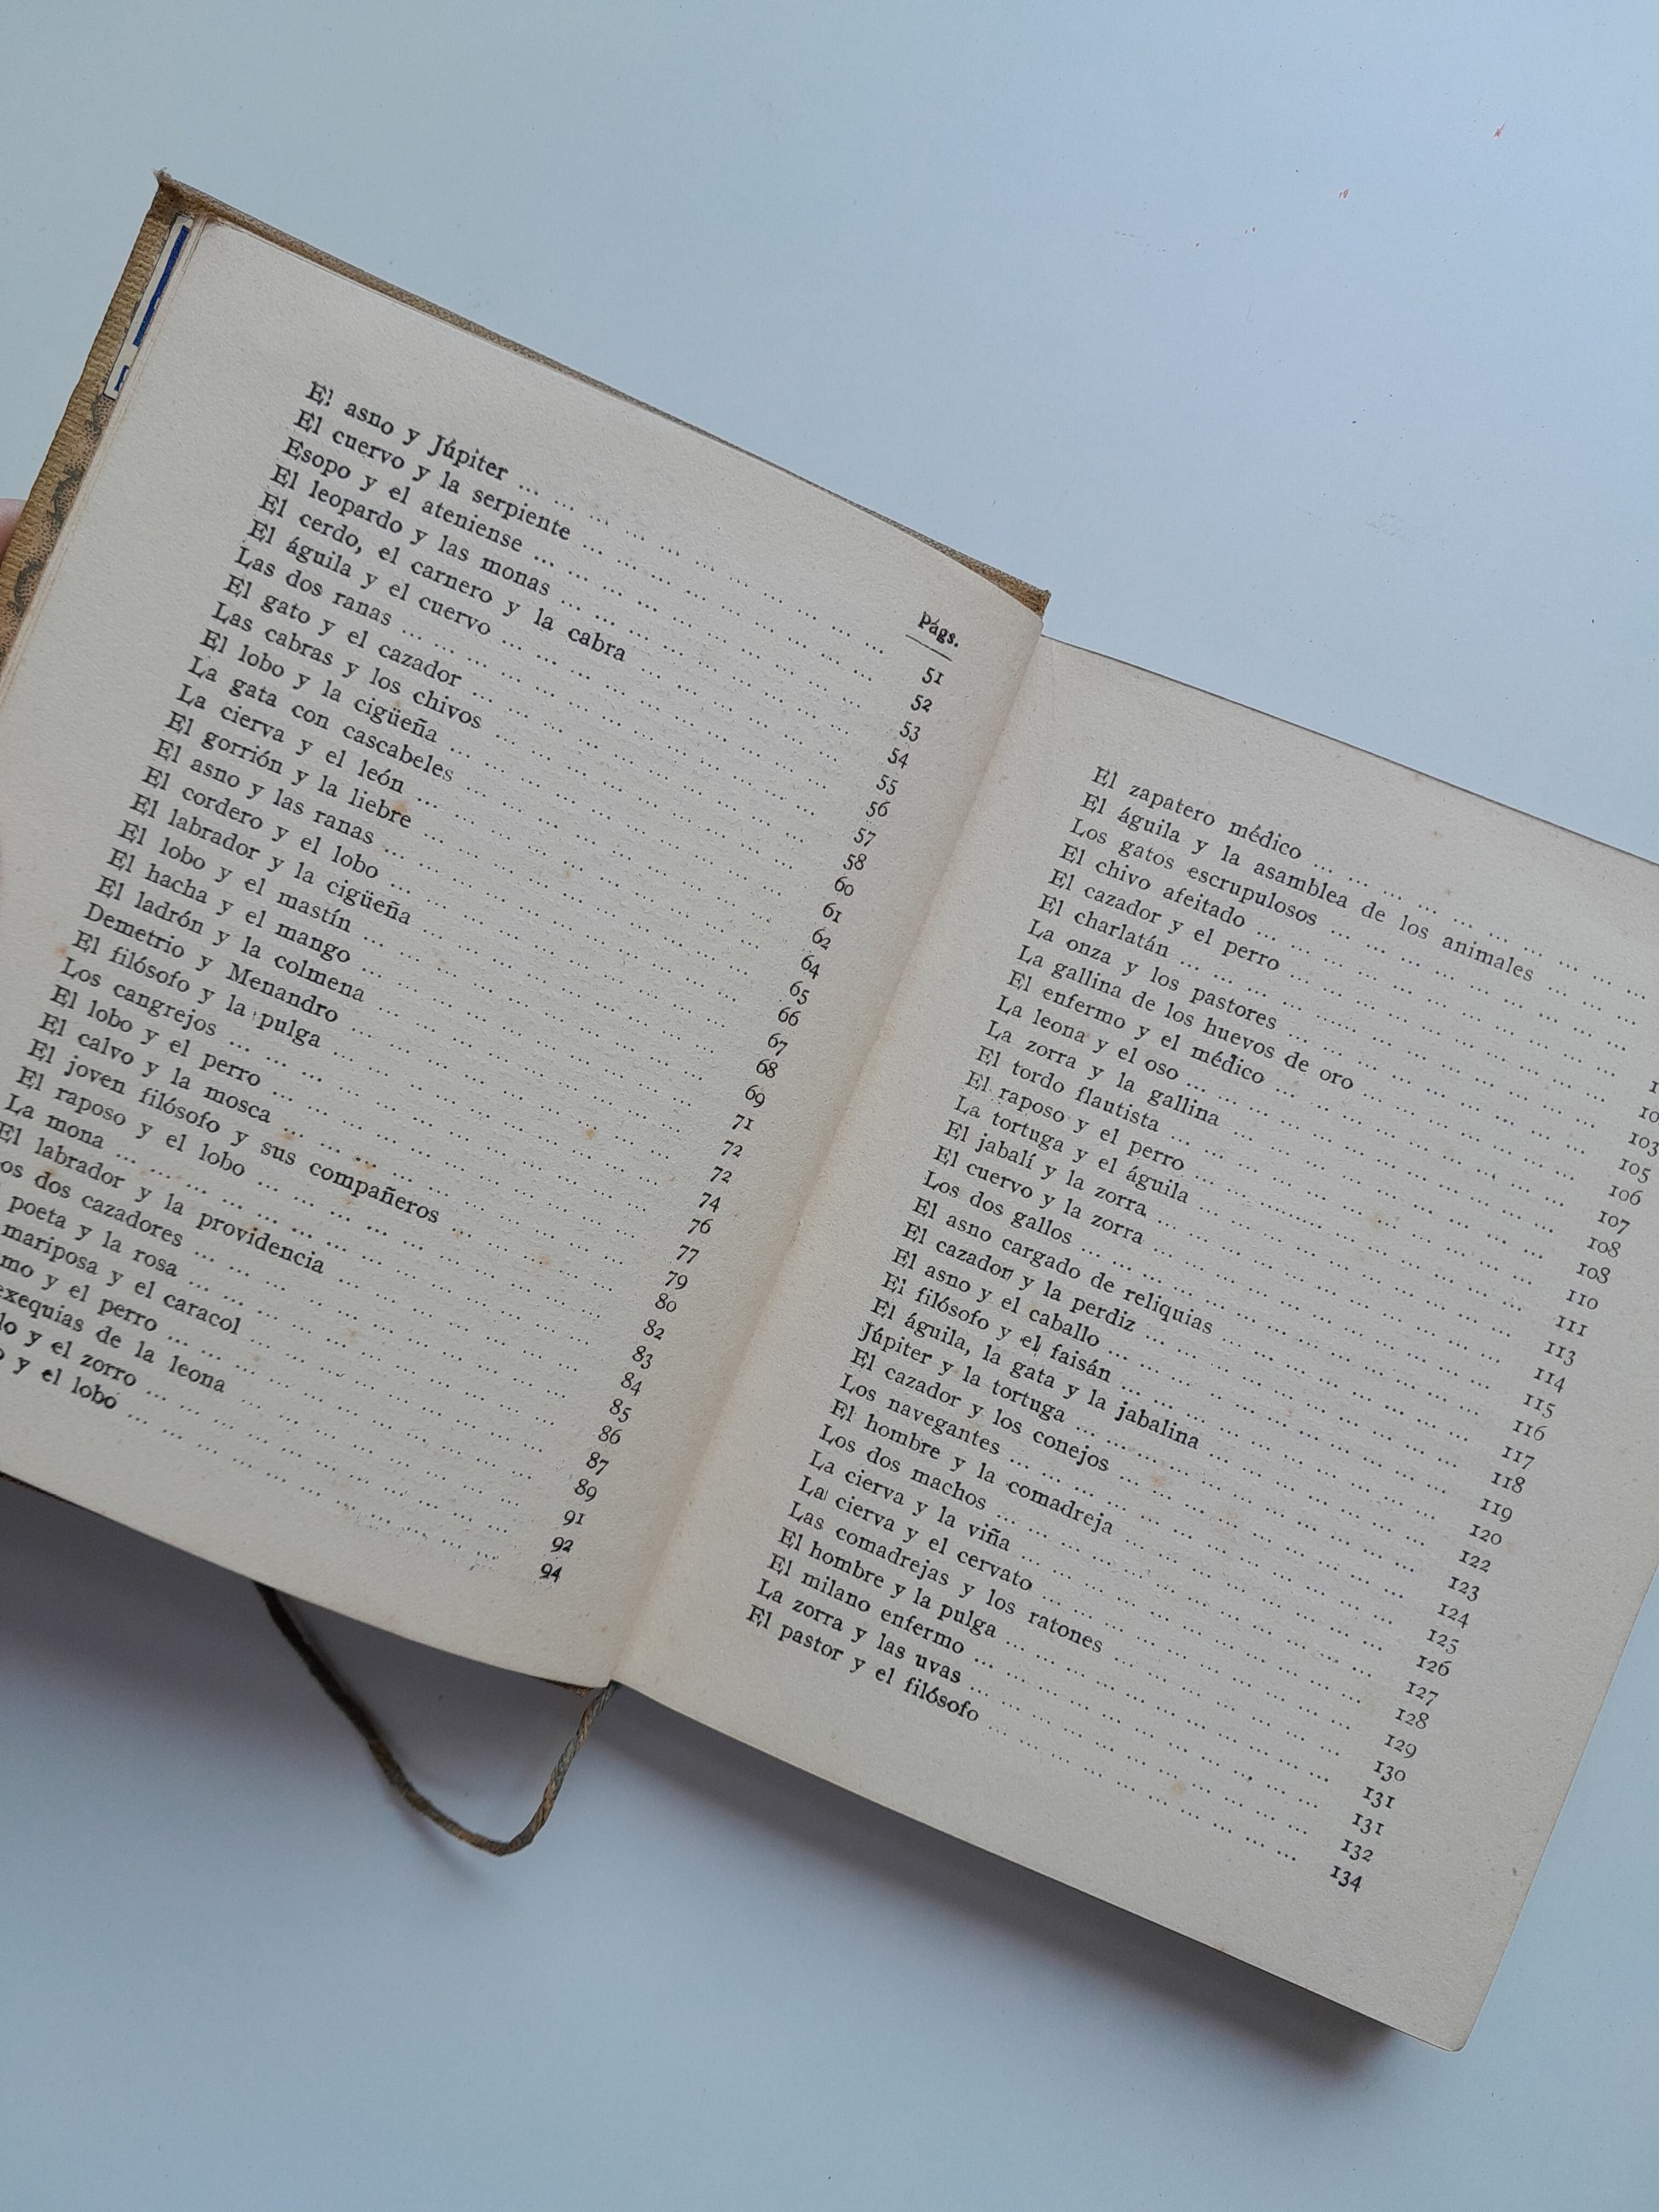 Págs.
El asno y Júpiter ... 51
El cuervo y la serpiente ... 52
Esopo y el ateniense ... 53
El leopardo y las monas ... 54
El cerdo, el carnero y la cabra ... 55
El águila y el cuervo ... 56
Las dos ranas ... 57
El gato y el cazador ... 58
Las cabras y los chivos ... 60
El lobo y la cigüeña ... 61
La gata con cascabeles ... 62
La cierva y el león ... 64
El gorrión y la liebre ... 65
El asno y las ranas ... 66
El cordero y el lobo ... 67
El labrador y la cigüeña ... 68
El lobo y el mastín ... 69
El hacha y el mango ... 71
El ladrón y la colmena ... 72
Demetrio y Menandro ... 72
El filósofo y la pulga ... 74
Los cangrejos ... 76
El lobo y el perro ... 77
El calvo y la mosca ... 79
El joven filósofo y sus compañeros ... 80
El raposo y el lobo ... 82
La mona ... 83
El labrador y la providencia ... 84
os dos cazadores ... 85
poeta y la rosa ... 86
mariposa y el caracol ... 87
mo y el perro ... 89
exequias de la leona ... 91
lo y el zorro ... 92
y el lobo ... 94
El zapatero médico ...
El águila y la asamblea de los animales ...
Los gatos escrupulosos ...
El chivo afeitado ...
El cazador y el perro ... 10
El charlatán ... 103
La onza y los pastores ... 105
La gallina de los huevos de oro ... 106
El enfermo y el médico ... 107
La leona y el oso ... 108
La zorra y la gallina ... 108
El tordo flautista ... 110
El raposo y el perro ... 111
La tortuga y el águila ... 113
El jabalí y la zorra ... 114
El cuervo y la zorra ... 115
Los dos gallos ... 116
El asno cargado de reliquias ... 117
El cazador y la perdiz ... 118
El asno y el caballo ... 119
El filósofo y el faisán ... 120
El águila, la gata y la jabalina ... 122
Júpiter y la tortuga ... 123
El cazador y los conejos ... 124
Los navegantes ... 125
El hombre y la comadreja ... 126
Los dos machos ... 127
La cierva y la viña ... 128
La cierva y el cervato ... 129
Las comadrejas y los ratones ... 130
El hombre y la pulga ... 131
El milano enfermo ... 131
La zorra y las uvas ... 132
El pastor y el filósofo ... 134